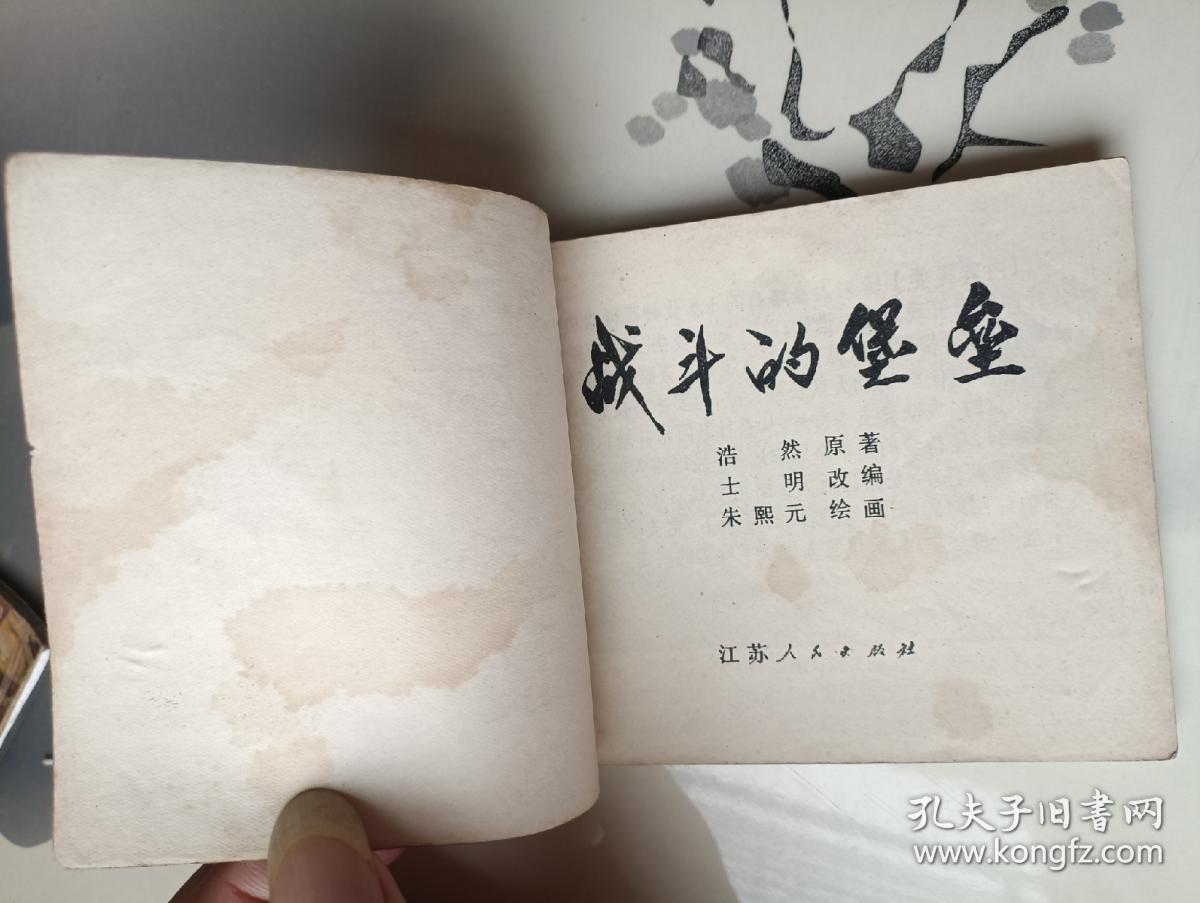 战斗的堡垒
浩然 原著
士明 改编
朱熙元 绘画
江苏人民出版社
孔夫子旧书网
www.kongfz.com